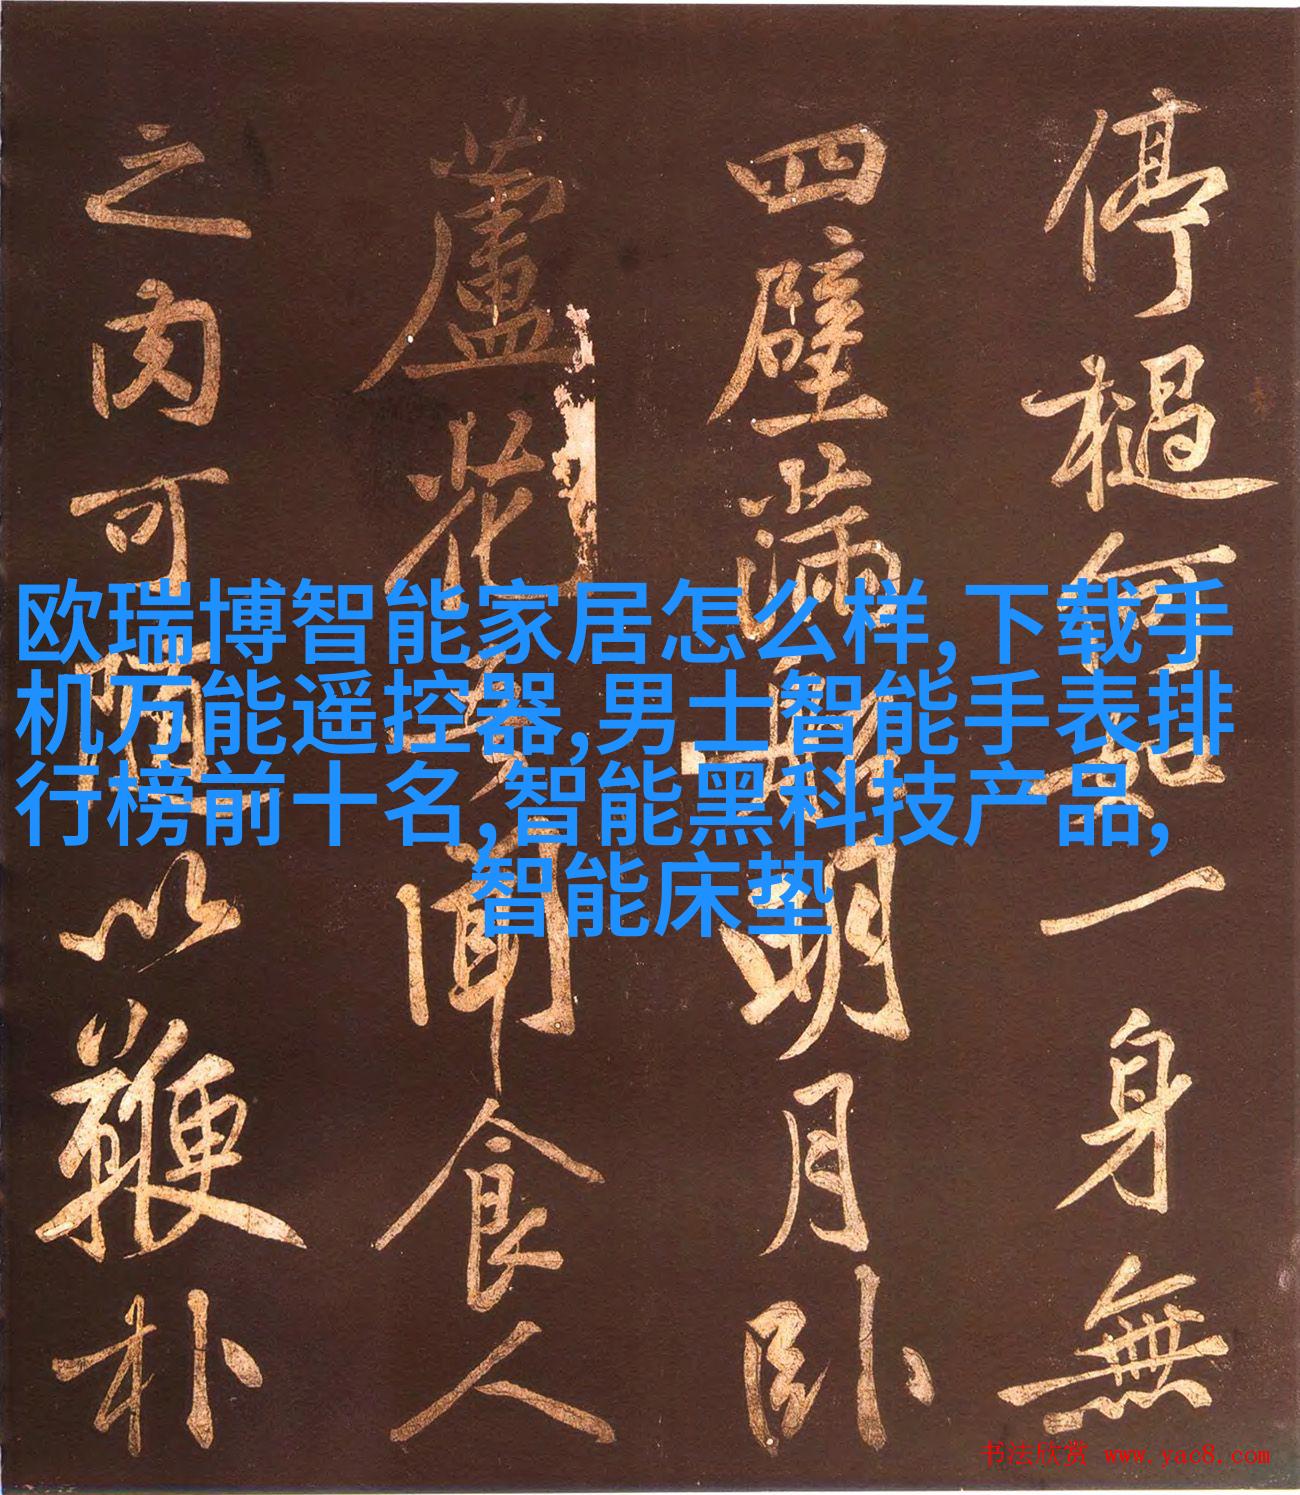 停檛何如一身無
四壁滿船明月卧
蘆花
聞食人
之肉可
以鞭朴
欧瑞博智能家居怎么样,下载手
机万能遥控器,男士智能手表排
行榜前十名,智能黑科技产品,
智能床垫
书法欣赏 www.yac8.com